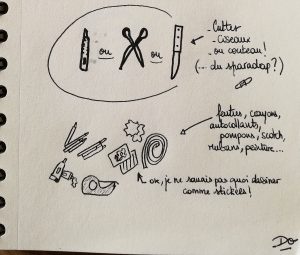 ou
ou
- Cutter
- Ciseaux
- ou couteau !
(... du sparadrap ?)
feutres, crayons,
autocollants,
pompons, scotch,
rubans, peinture...
ok, je ne savais pas quoi dessiner
comme stickers !
Do